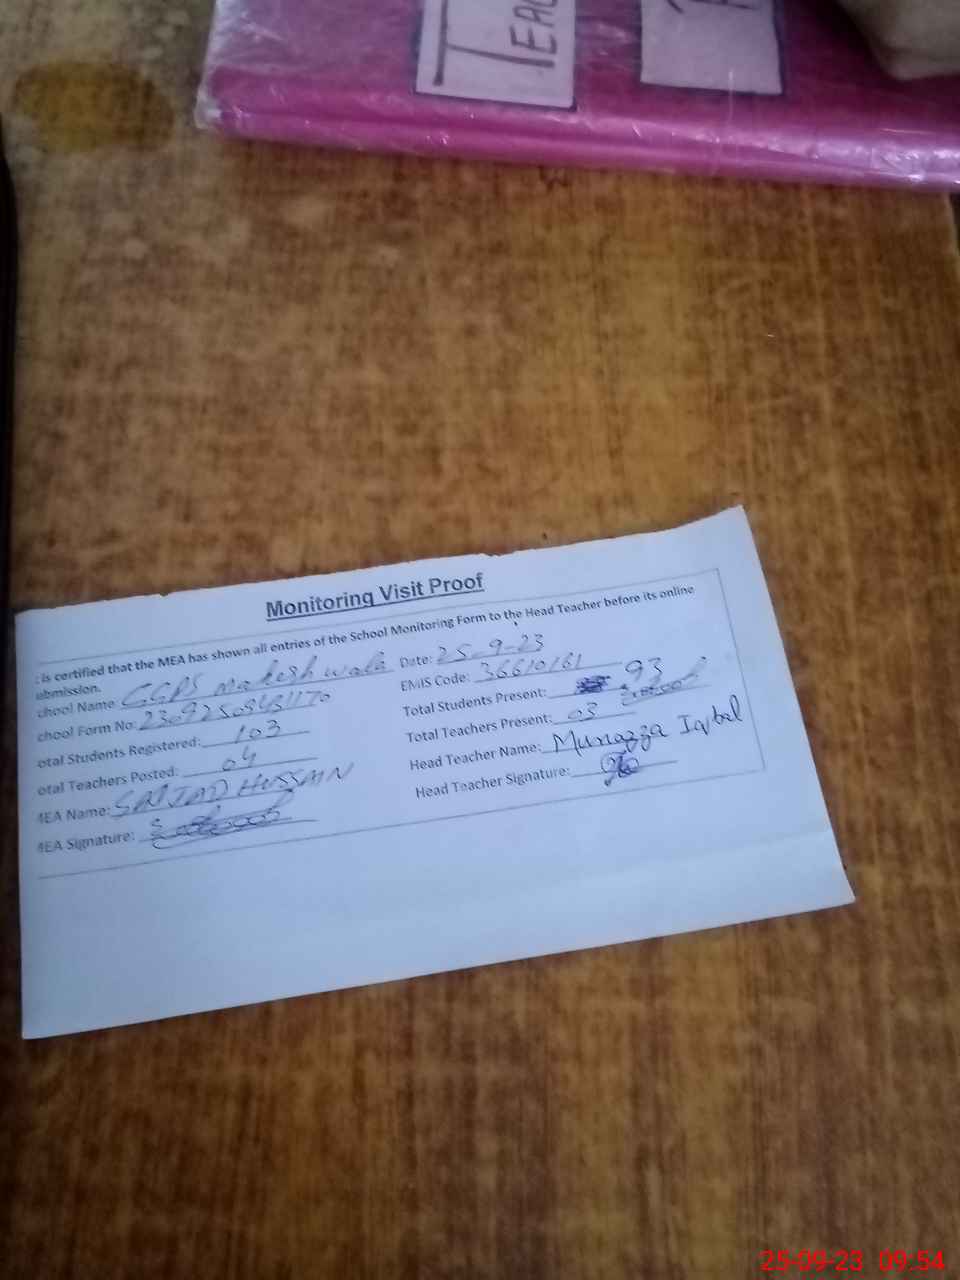 TEAC
Monitoring Visit Proof
: is certified that the MEA has shown all entries of the School Monitoring Form to the Head Teacher before its online
ubmission.
chool Name: GGPS makesh wala Date: 25-9-23
chool Form No: EMIS Code: 36610161
otal Students Registered: 103 Total Students Present: 93
otal Teachers Posted: 04 Total Teachers Present: 03
MEA Name: SAJJAD HUSSAIN Head Teacher Name: Munazza Iqbal
MEA Signature: Head Teacher Signature:
25-09-23 09:54